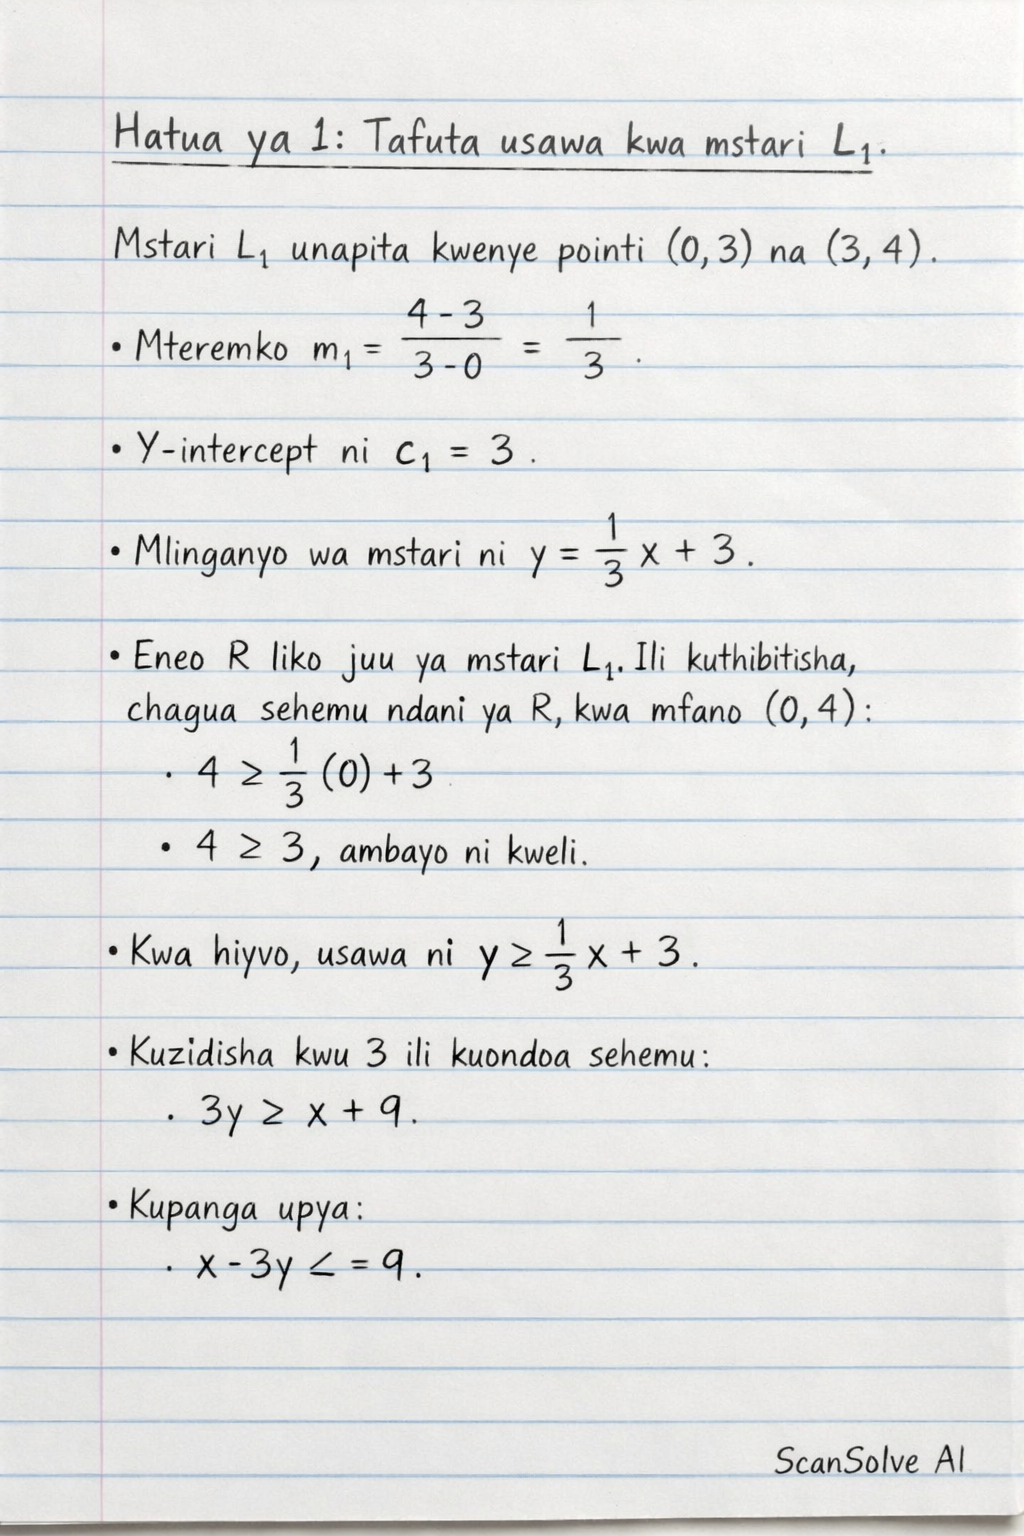 Hatua ya 1: Tafuta usawa kwa mstari L₁.
Mstari L₁ unapita kwenye pointi (0,3) na (3,4).
• Mteremko m₁ = (4-3)/(3-0) = 1/3.
• Y-intercept ni c₁ = 3.
• Mlinganyo wa mstari ni y = 1/3 x + 3.
• Eneo R liko juu ya mstari L₁. Ili kuthibitisha,
chagua sehemu ndani ya R, kwa mfano (0,4):
• 4 ≥ 1/3 (0) + 3
• 4 ≥ 3, ambayo ni kweli.
• Kwa hiyvo, usawa ni y ≥ 1/3 x + 3.
• Kuzidisha kwu 3 ili kuondoa sehemu:
• 3y ≥ x + 9.
• Kupanga upya:
• x - 3y < = 9.
ScanSolve AI